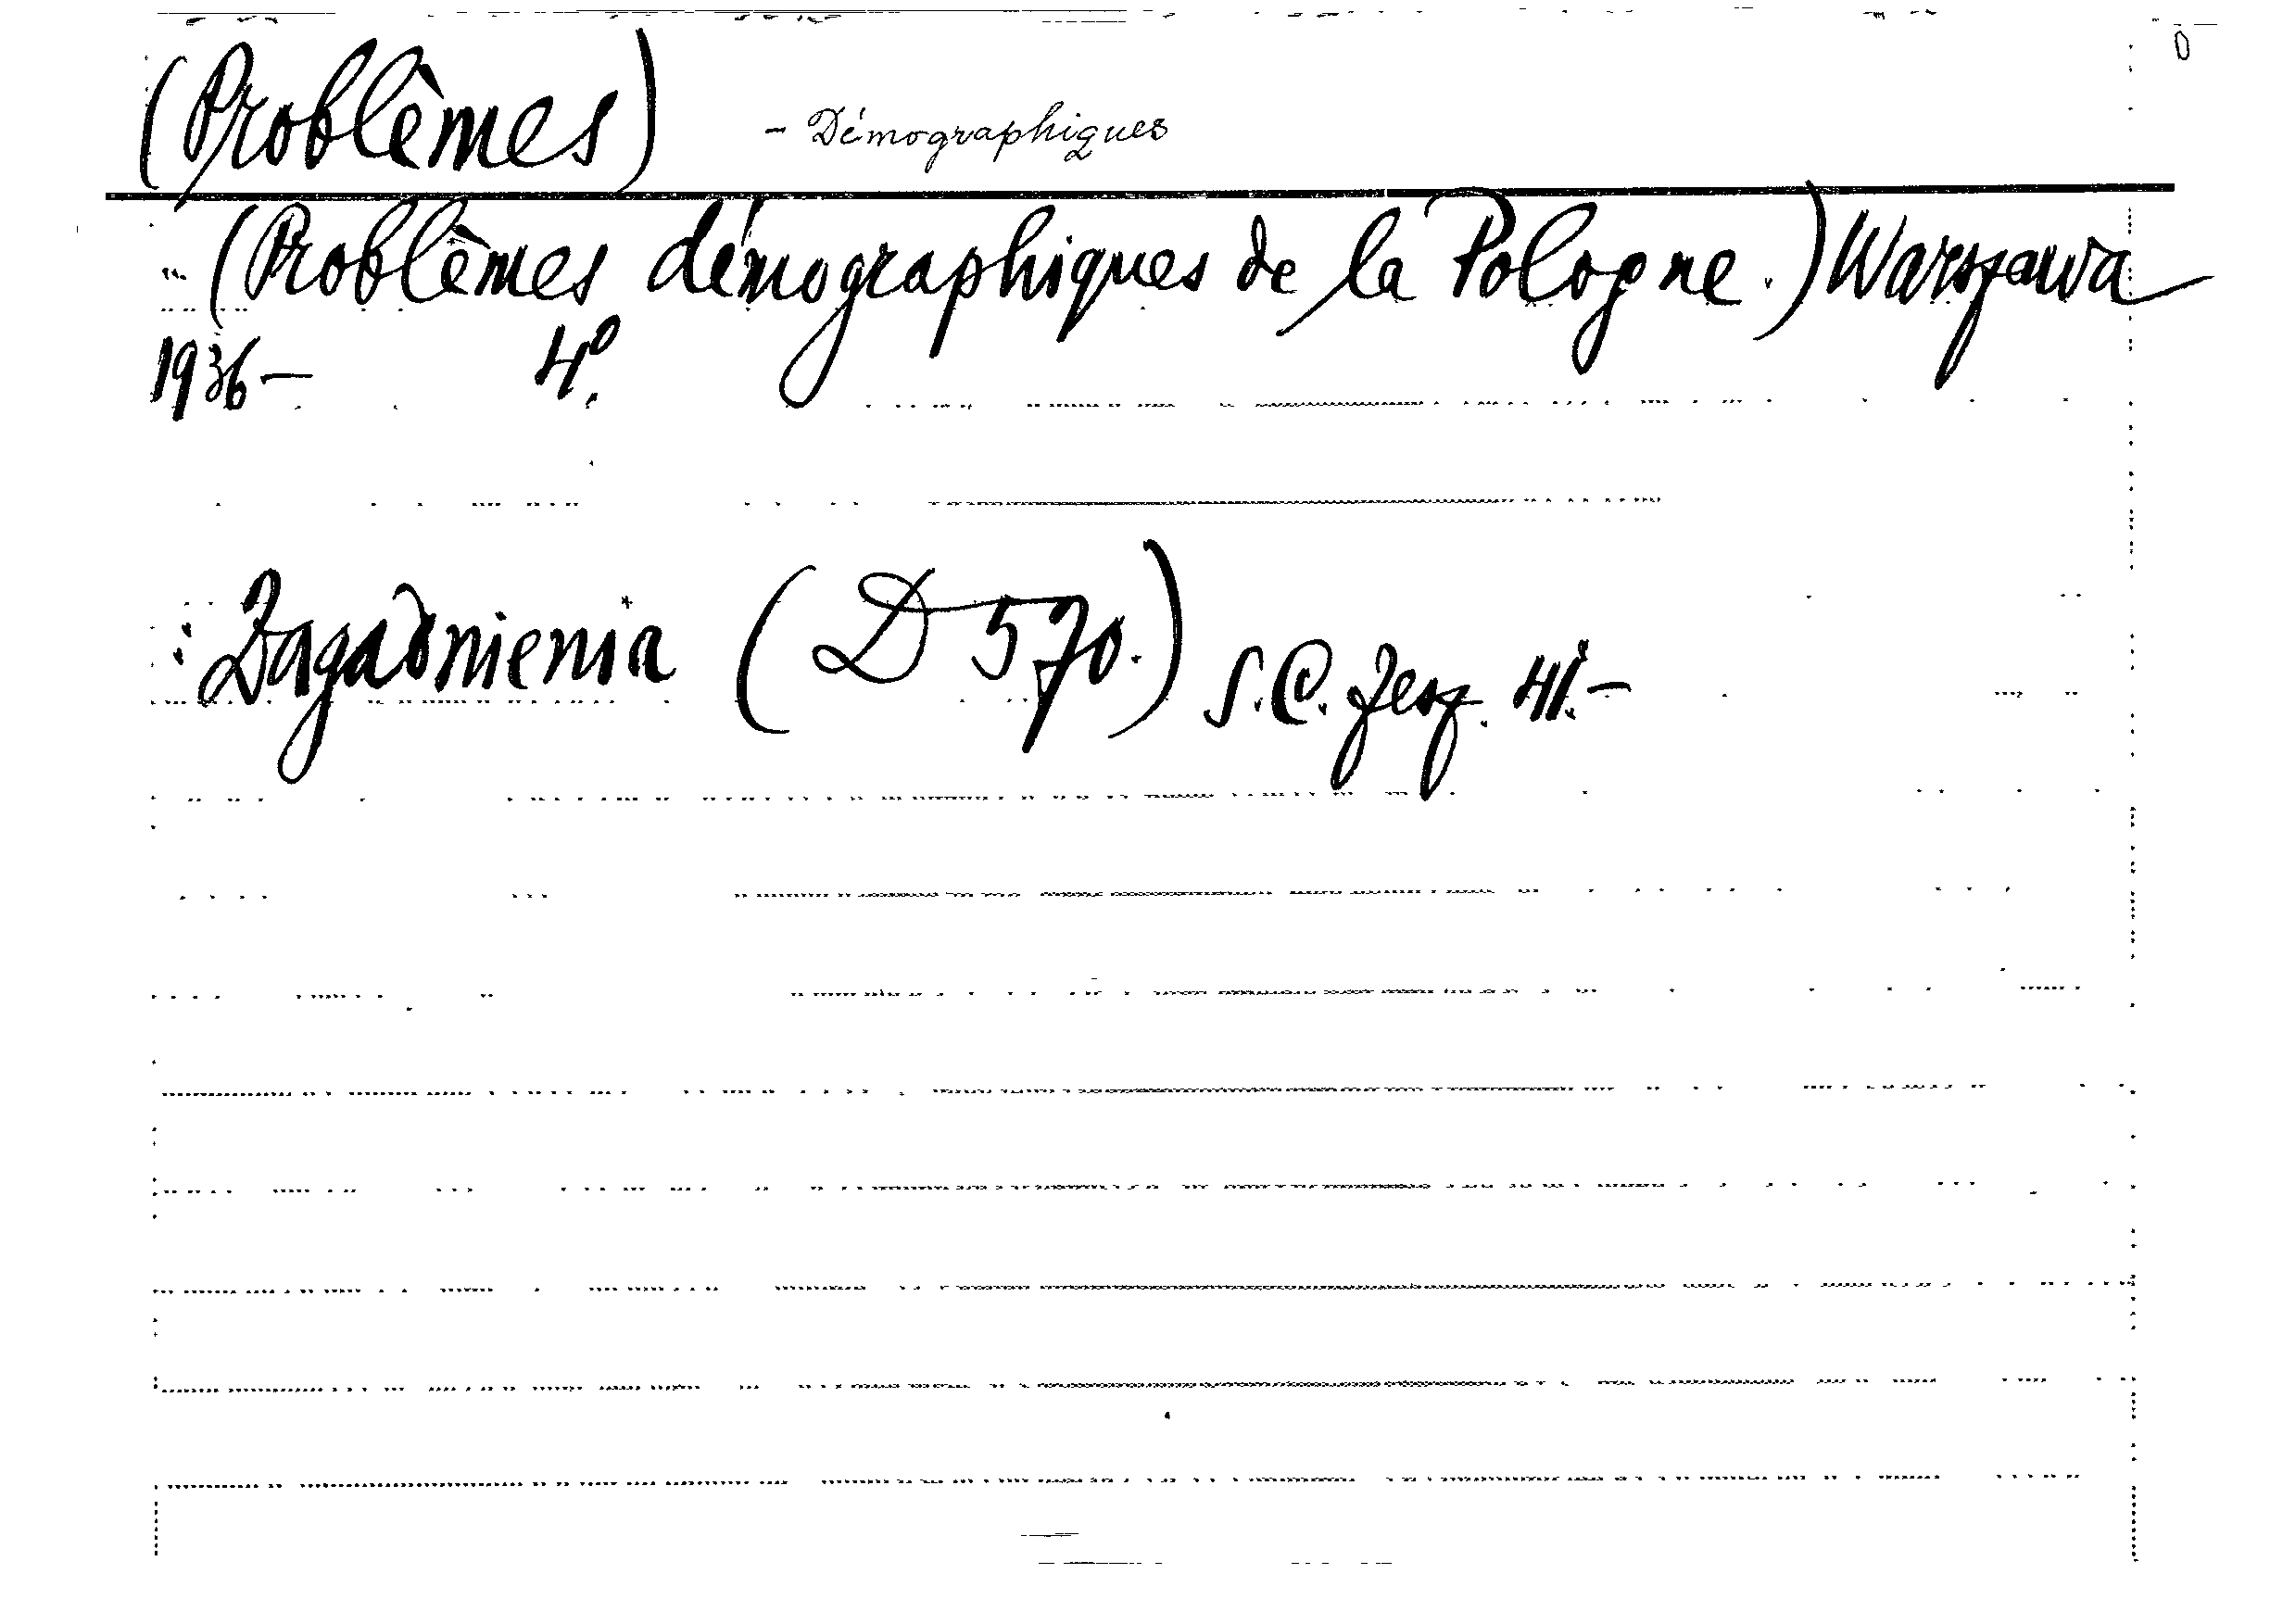 (Problèmes) - Démographiques
(Problèmes démographiques de la Pologne.) Warszawa
1936- 4º.
: Zagadnienia (D 570.) S.C. Zesz. 41.-